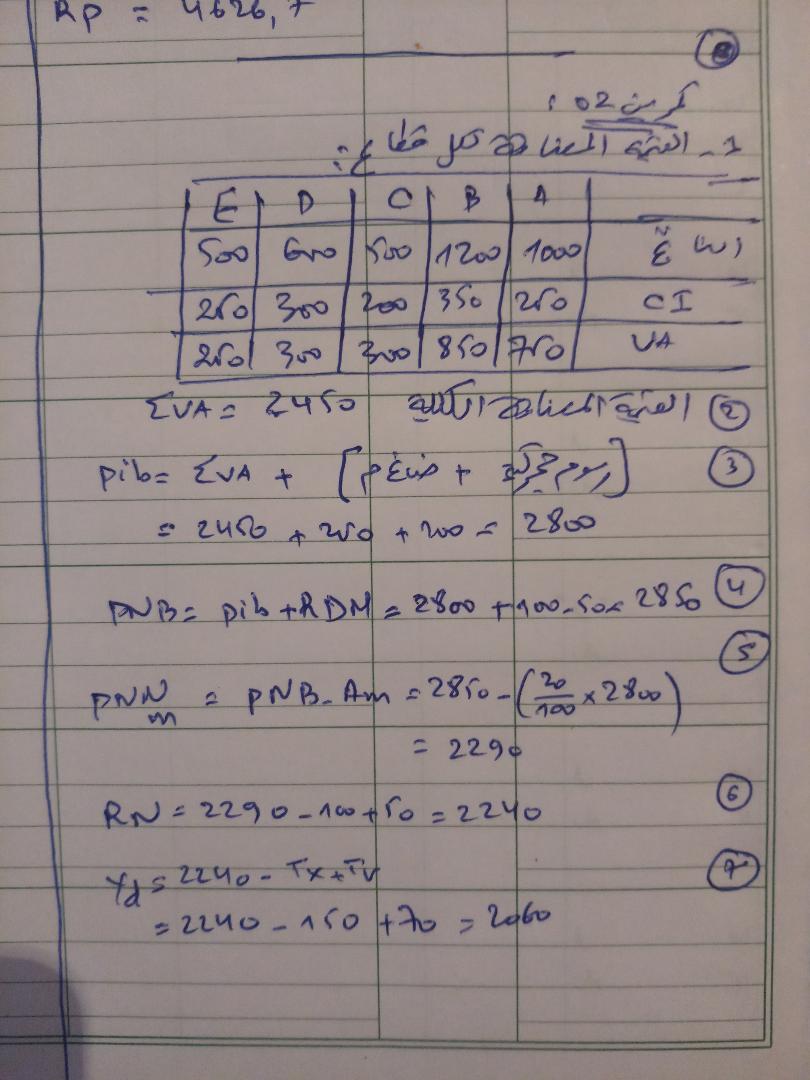 Rp = 4626,7
تمرين 02 :
1_ القيمة المضافة لكل قطاع :
E D C B A
500 600 500 1200 1000
250 300 200 350 250 CI
250 300 300 850 750 VA
② القيمة المضافة الكلية ΣVA = 2450
③ pib = ΣVA + [رسوم جمركية + ض ق م]
= 2450 + 250 + 200 = 2800
④ PNB = pib + RDM = 2800 + 100 - 50 = 2850
⑤
PNNm = PNB - Am = 2850 - (20/100 × 2800)
= 2290
⑥ RN = 2290 - 100 + 50 = 2240
⑦ Yd = 2240 - Tx + Tr
= 2240 - 150 + 70 = 2060